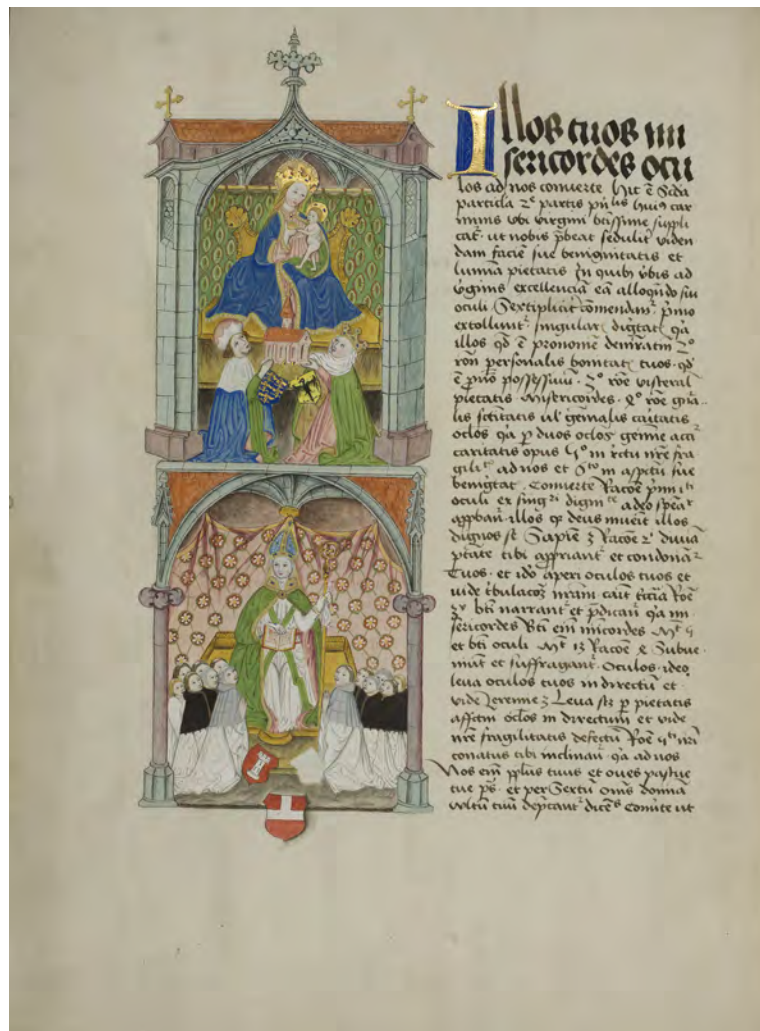 Illos tuos mi
sericordes ocu
los ad nos converte hit ē Scda
particla 2ᵉ partis pn̄lis huiꝰ car
minis vbi virgini btissime suppli
catʳ ut nobis p̄beat sedulit viden
dam faciē sue benignitatis et
lumina pietatis In quibꝫ vbis ad
v̓ginis excellenciā eā alloqn̄do sui
oculi Sextiplicit cōmendanʳ pͦmo
extollunt singulari digtate qa
illos qd ē pronomē demr̄atm 2ͦ
rōn personalis bonitat tuos qd
ē pn̄o possessiuū 3ͦ rōe visteral
pietatis misericordes 4ͦ rōe
lis sc̄titatis ul gemalis caitatis
oclos qa p duos oclos gemie acci
caritatis opus 5ͦ in nr̄e fra
gilitͣ ad nos et 6ͭͦ in aspctu sue
benigtat Converte Racōe pͥmi
oculi ex singʳⁱ digmᵗᵉ adeo
illos qꝫ deus illos
dignos Sapie 3 Racōe 2ⁱ diuīa
ptāte tibi et condonāʳ
Tuos et ido aperi oculos tuos et
vide tbulacoꝫ nr̄am tercia Rōe
bti narrantʳ et p̄dicāʳ qa mi
sericordes Bti em̄ mīcordes Mᵗ 5
et bti oculi Mᵗ 13 Racōe 4 Subue
niūt et suffragantʳ Oculos ideo
leua oculos tuos in directū et
vide Jeremie 3 Leua scꝫ p pietatis
affctm oclos in directum et vide
nr̄e fragilitatis defectū Rōe 5ᵗᵃ
conatus tibi inclināʳ qa ad nos
Nos em̄ pplus tuus et oues pascue
tue pˢ et per Sextū om̄s
vltū tuū dep̄cantʳ dicēs Convᵗe ut